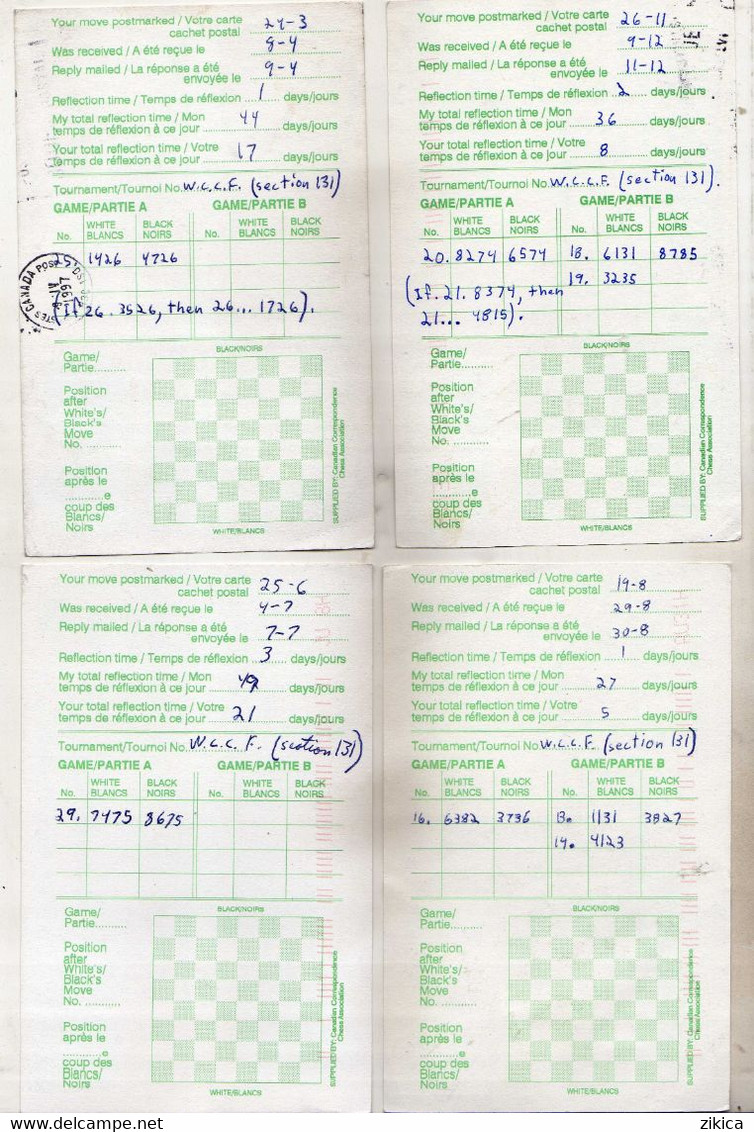 Your move postmarked / Votre carte
cachet postal 24-3
Was received / A été reçue le 8-4
Reply mailed / La réponse a été
envoyée le 9-4
Reflection time / Temps de réflexion 1 days/jours
My total reflection time / Mon
temps de réflexion à ce jour 44 days/jours
Your total reflection time / Votre
temps de réflexion à ce jour 17 days/jours
Tournament/Tournoi No. W.C.C.F. (section 131)
GAME/PARTIE A GAME/PARTIE B
No. WHITE BLANCS BLACK NOIRS WHITE BLANCS BLACK NOIRS
25. 1426 4726
(If 26. 3526, then 26... 1726).
CANADA
1997
Game/
Partie..........
Position
after
White's/
Black's
Move
No. ...........
Position
après le
............e
coup des
Blancs/
Noirs
BLACK/NOIRS
WHITE/BLANCS
SUPPLIED BY: Canadian Correspondence
Chess Association
Your move postmarked / Votre carte
cachet postal 26-11
Was received / A été reçue le 9-12
Reply mailed / La réponse a été
envoyée le 11-12
Reflection time / Temps de réflexion 2 days/jours
My total reflection time / Mon
temps de réflexion à ce jour 36 days/jours
Your total reflection time / Votre
temps de réflexion à ce jour 8 days/jours
Tournament/Tournoi No. W.C.C.F. (section 131).
GAME/PARTIE A GAME/PARTIE B
No. WHITE BLANCS BLACK NOIRS No. WHITE BLANCS BLACK NOIRS
20. 8274 6574 18. 6131 8785
19. 3235
(If 21. 8374, then
21... 4815).
Game/
Partie..........
Position
after
White's/
Black's
Move
No. ...........
Position
après le
............e
coup des
Blancs/
Noirs
BLACK/NOIRS
WHITE/BLANCS
SUPPLIED BY: Canadian Correspondence
Chess Association
Your move postmarked / Votre carte
cachet postal 25-6
Was received / A été reçue le 4-7
Reply mailed / La réponse a été
envoyée le 7-7
Reflection time / Temps de réflexion 3 days/jours
My total reflection time / Mon
temps de réflexion à ce jour 49 days/jours
Your total reflection time / Votre
temps de réflexion à ce jour 21 days/jours
Tournament/Tournoi No. W.C.C.F. (section 131)
GAME/PARTIE A GAME/PARTIE B
No. WHITE BLANCS BLACK NOIRS No. WHITE BLANCS BLACK NOIRS
29. 7475 8675
Game/
Partie..........
Position
after
White's/
Black's
Move
No. ...........
Position
après le
............e
coup des
Blancs/
Noirs
BLACK/NOIRS
WHITE/BLANCS
SUPPLIED BY: Canadian Correspondence
Chess Association
Your move postmarked / Votre carte
cachet postal 19-8
Was received / A été reçue le 29-8
Reply mailed / La réponse a été
envoyée le 30-8
Reflection time / Temps de réflexion 1 days/jours
My total reflection time / Mon
temps de réflexion à ce jour 27 days/jours
Your total reflection time / Votre
temps de réflexion à ce jour 5 days/jours
Tournament/Tournoi No. W.C.C.F. (section 131)
GAME/PARTIE A GAME/PARTIE B
No. WHITE BLANCS BLACK NOIRS No. WHITE BLANCS BLACK NOIRS
16. 6382 3736 13. 1131 3827
14. 4123
Game/
Partie..........
Position
after
White's/
Black's
Move
No. ...........
Position
après le
............e
coup des
Blancs/
Noirs
BLACK/NOIRS
WHITE/BLANCS
SUPPLIED BY: Canadian Correspondence
Chess Association
zikica